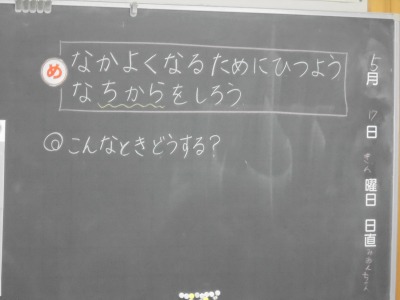 め なかよくなるためにひつよう
なちからをしろう
◎こんなときどうする?
5月
17日
きん曜日
日直